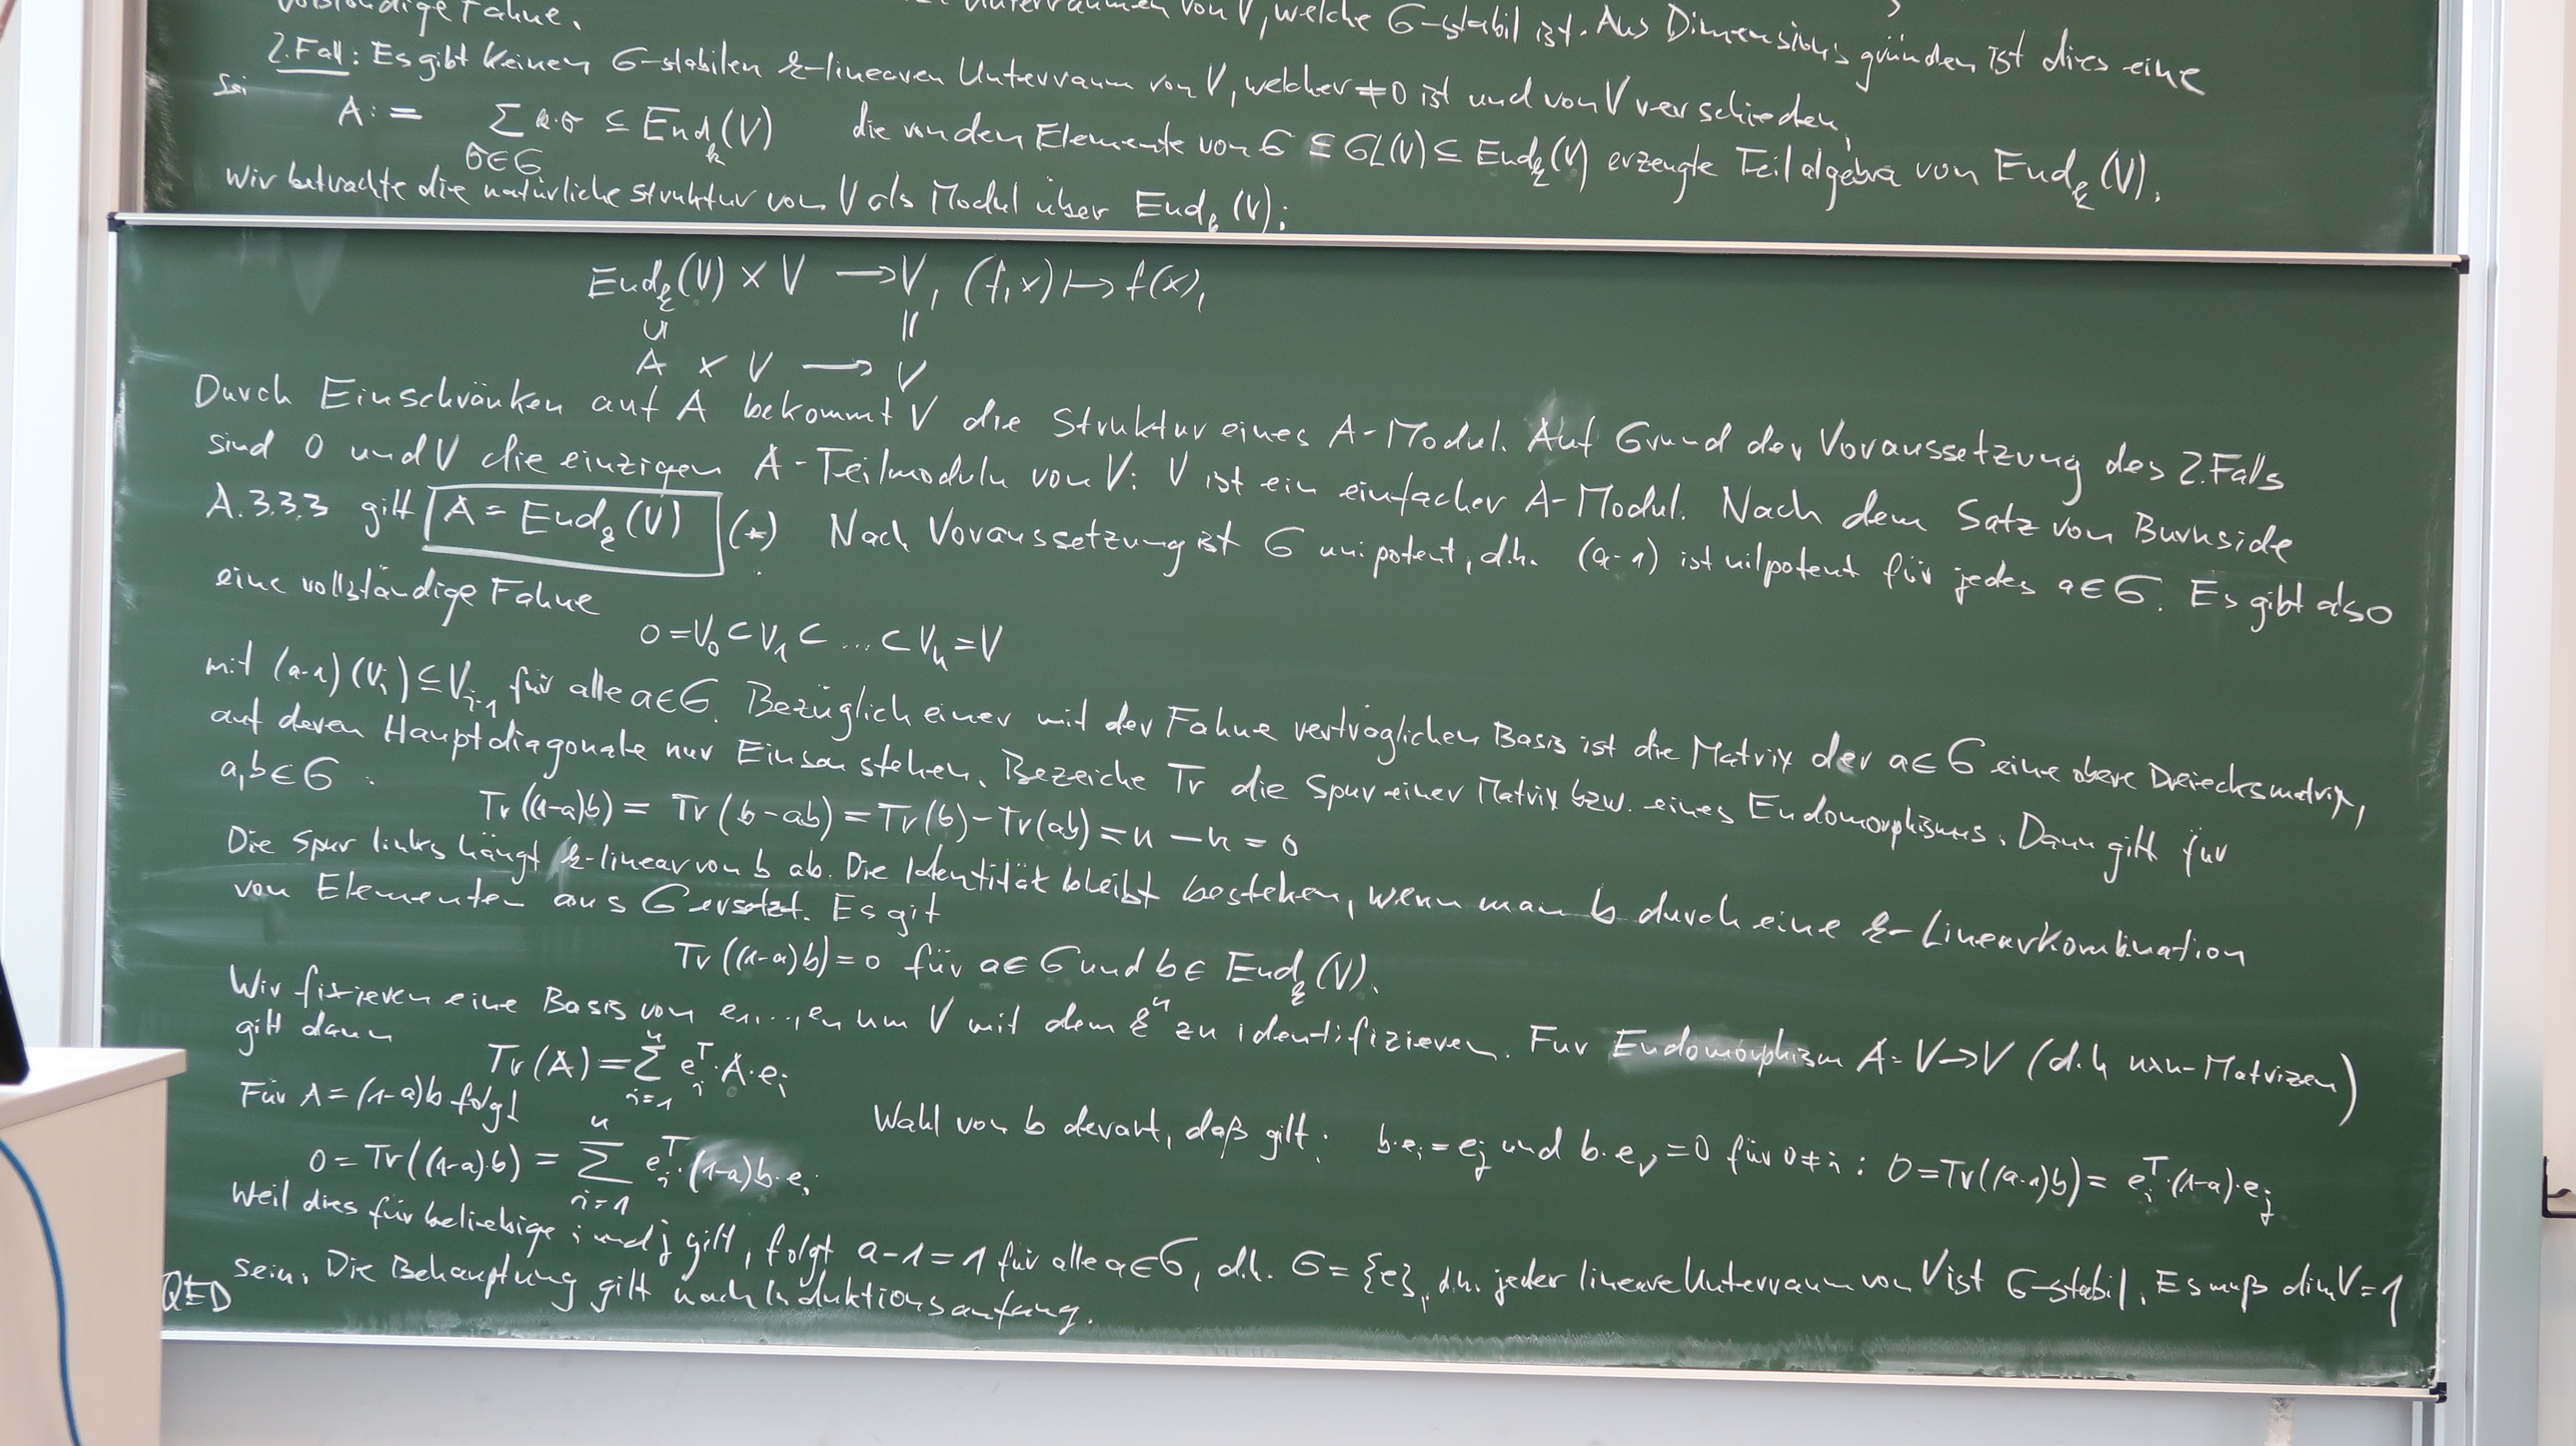 vollständige Fahne.
Unterräumen von V, welche G-stabil ist. Aus Dimensionsgründen ist dies eine
2.Fall: Es gibt keinen G-stabilen k-linearen Unterraum von V, welcher ≠0 ist und von V verschieden.
Sei
A := ∑_{σ∈G} k·σ ⊆ End_k(V) die von den Elemente von G ⊆ GL(V) ⊆ End_k(V) erzeugte Teilalgebra von End_k(V).
Wir betrachte die natürliche Struktur von V als Modul über End_k(V):
End_k(V) × V → V, (f,x) ↦ f(x),
∪| ||
A × V → V
Durch Einschränken auf A bekommt V die Struktur eines A-Modul. Auf Grund der Voraussetzung des 2.Falls
sind 0 und V die einzigen A-Teilmoduln von V: V ist ein einfacher A-Modul. Nach dem Satz von Burnside
A.3.3.3 gilt A = End_k(V) (*) Nach Voraussetzung ist G unipotent, d.h. (a-1) ist nilpotent für jedes a∈G. Es gibt also
eine vollständige Fahne
0=V_0 ⊂ V_1 ⊂ ... ⊂ V_n = V
mit (a-1)(V_i) ⊆ V_{i-1} für alle a∈G. Bezüglich einer mit der Fahne verträglichen Basis ist die Matrix der a∈G eine obere Dreiecksmatrix,
auf deren Hauptdiagonale nur Einsen stehen. Bezeiche Tr die Spur einer Matrix bzw. eines Endomorphismus. Dann gilt für
a,b∈G :
Tr((1-a)b) = Tr(b-ab) = Tr(b)-Tr(ab) = n - n = 0
Die Spur links hängt k-linear von b ab. Die Identität bleibt bestehen, wenn man b durch eine k-Linearkombination
von Elementen aus G ersetzt. Es git
Tr((1-a)b)=0 für a∈G und b∈ End_k(V).
Wir fixieren eine Basis von e_1,...,e_n um V mit dem k^n zu identifizieren. Fur Endomorphism A: V→V (d.h nxn-Matrizen)
gilt dann
Tr(A) = ∑_{i=1}^n e_i^T·A·e_i
Für A=(1-a)b folgt
Wahl von b derart, daß gilt: b·e_i = e_j und b·e_ν = 0 für ν≠i : 0=Tr((a-1)b) = e_i^T·(1-a)·e_j
0 = Tr((1-a)·b) = ∑_{i=1}^n e_i^T·(1-a)b·e_i
Weil dies für beliebige i und j gilt, folgt a-1=1 für alle a∈G, d.h. G={e}, d.h. jeder lineare Unterraum von V ist G-stabil. Es muß dim V=1
sein. Die Behauptung gilt nach Induktionsanfang.
QED